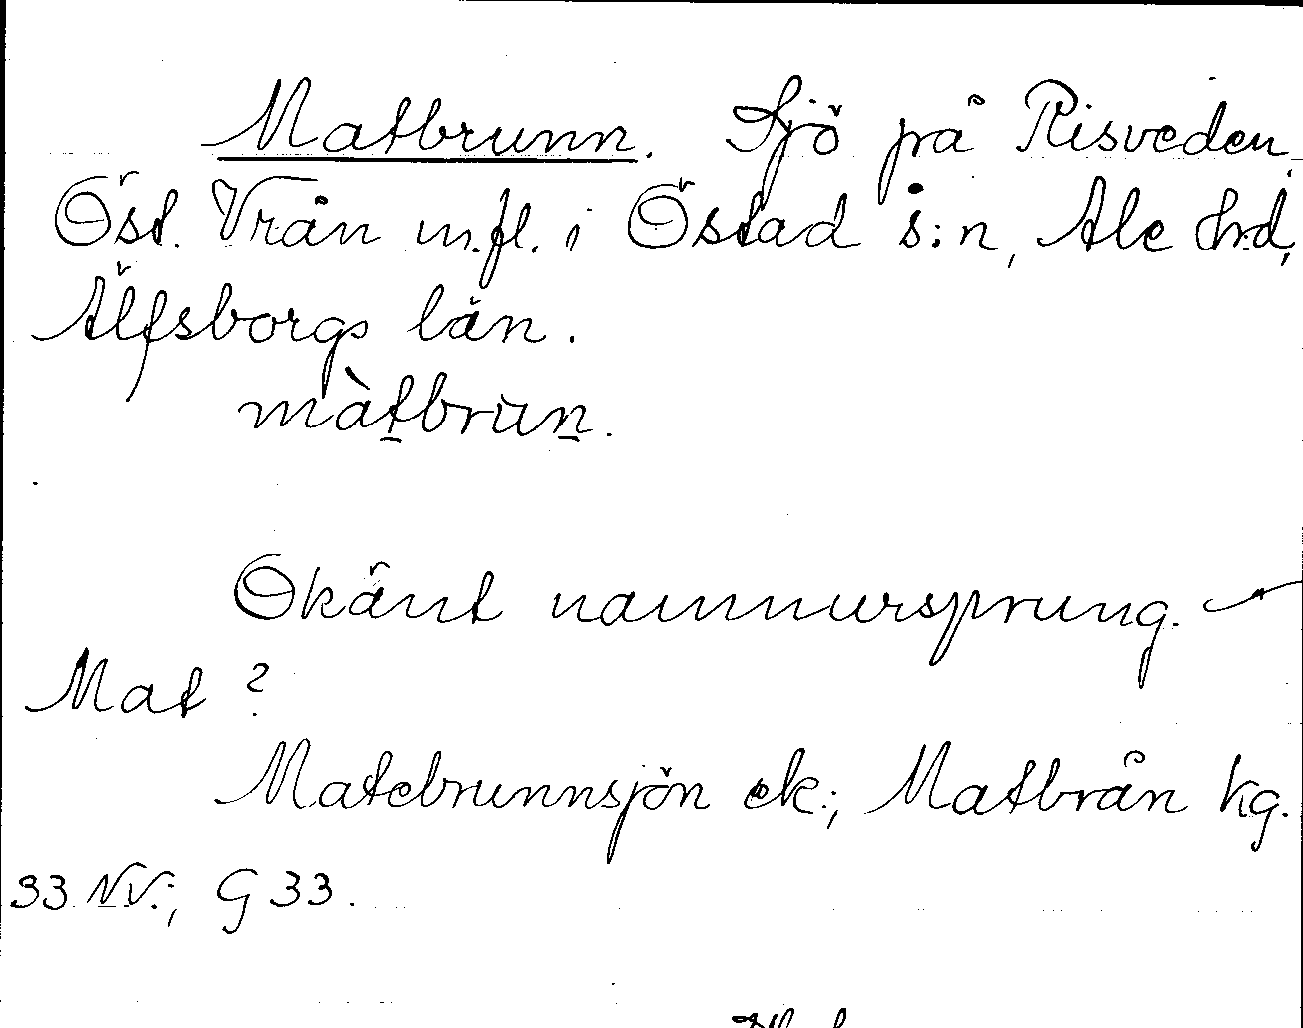 Matbrunn. Sjö på Risveden
Öst. Vrån m.fl. i Östad s:n, Ale hrd,
Älfsborgs län.
màt̲brun̲.
Okänt namnursprung. –
Mat?
Matebrunnsjön ek.; Matbrån kg.
33 NV.; G 33.